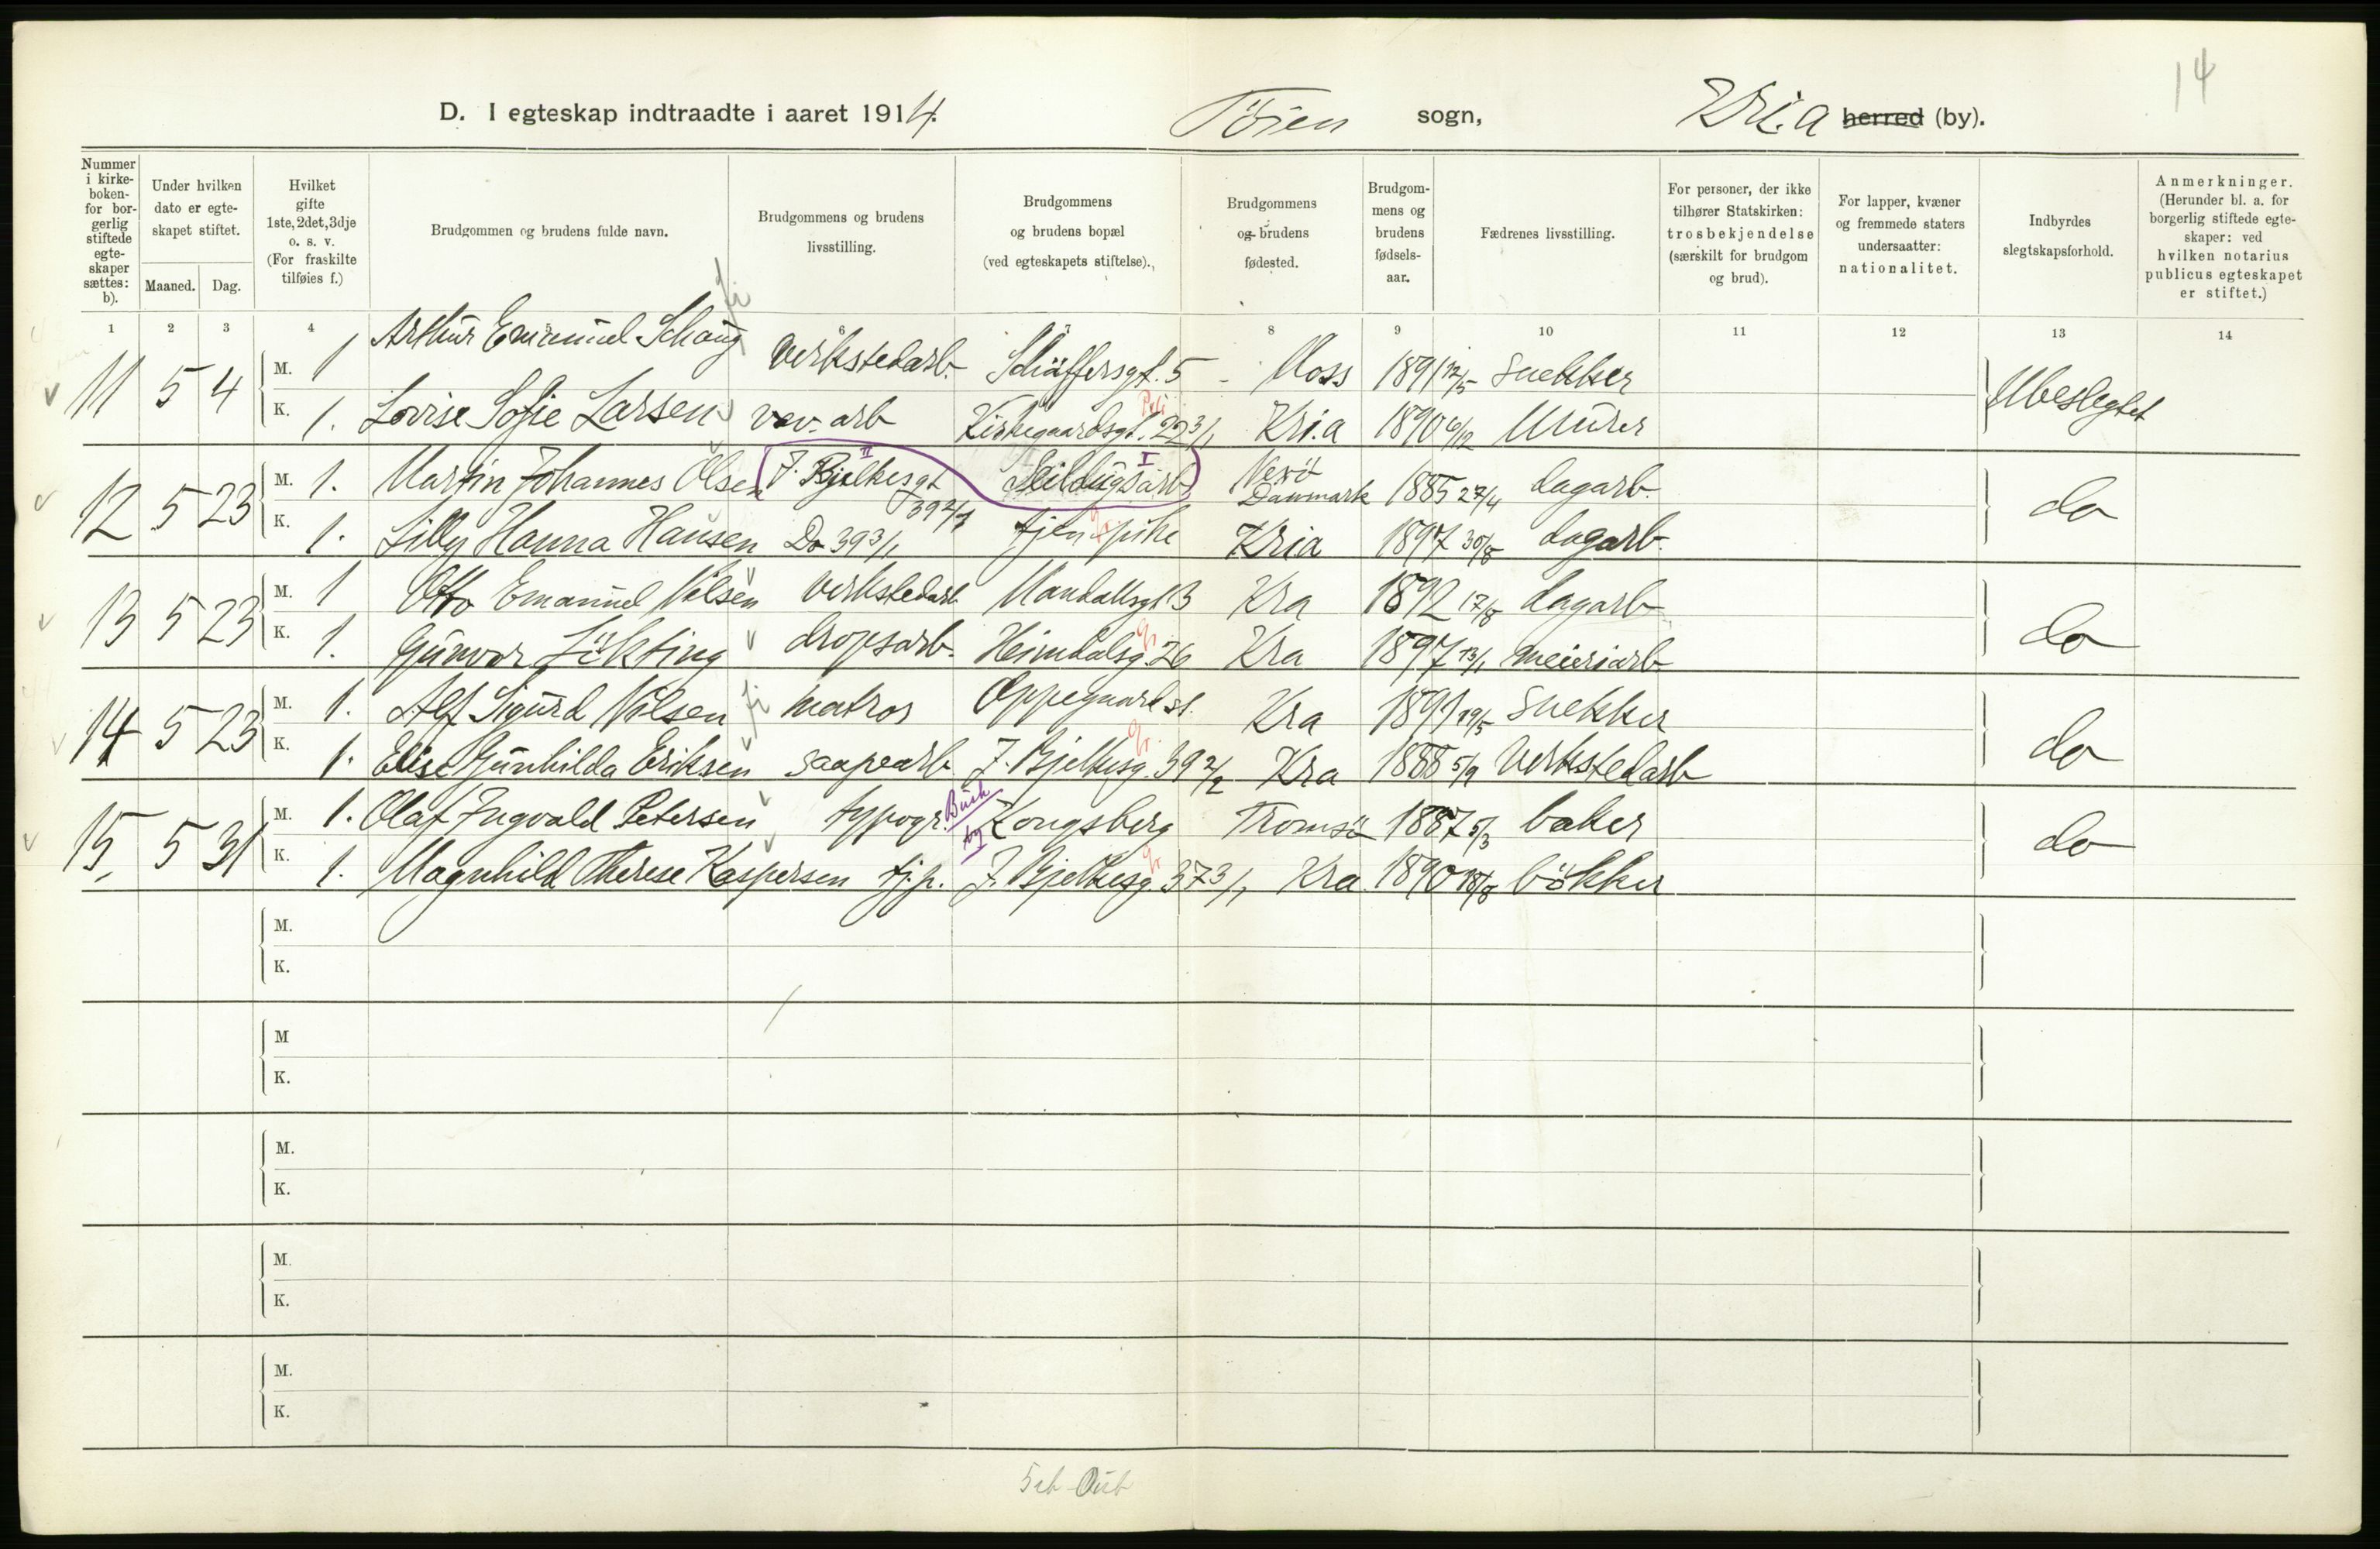 14
D. I egteskap indtraadte i aaret 1914. Töien sogn, Kri.a herred (by).
Nummer i kirke-boken for bor-gerlig stiftede egte-skaper sættes: b).
Under hvilken dato er egte-skapet stiftet.
Maaned. Dag.
Hvilket gifte 1ste, 2det, 3dje o. s. v. (For fraskilte tilføies f.)
Brudgommen og brudens fulde navn.
Brudgommens og brudens livsstilling.
Brudgommens og brudens bopæl (ved egteskapets stiftelse).
Brudgommens og brudens fødested.
Brudgom-mens og brudens fødsels-aar.
Fædrenes livsstilling.
For personer, der ikke tilhører Statskirken: trosbekjendelse (særskilt for brudgom og brud).
For lapper, kvæner og fremmede staters undersaatter: nationalitet.
Indbyrdes slegtskapsforhold.
Anmerkninger. (Herunder bl. a. for borgerlig stiftede egte-skaper: ved hvilken notarius publicus egteskapet er stiftet.)
1 2 3 4 5 6 7 8 9 10 11 12 13 14
11 5 4 M. 1 Arthur Emanuel Schaug verkstedarb. Schäffersgt. 5 Moss 1891 12/5 snekker Ubeslegtet
K. 1. Lovise Sofie Larsen vev. arb Kirkegaardsgt. 22 3/1 Kri.a 1890 6/12 Murer
12 5 23 M. 1. Martin Johannes Olsen J. Bjelkesgt 39 2/1 II Seildugsarb I Nexö Danmark 1885 27/4 dagarb. do
K. 1. Lilly Hanna Hansen Do 39 3/1 tjen.pike Kria 1897 30/8 dagarb.
13 5 23 M. 1 Otto Emanuel Nilsen verkstedarb Mandallsgt 3 Kra 1892 17/8 dagarb do
K. 1. Gunvor Lökting dropsarb. Heimdalsg. 26 Kra 1897 13/1 meieriarb
14 5 23 M. 1. Alf Sigurd Nilsen matros Oppegaard st. Kra 1891 19/5 snekker do
K. 1. Elise Gunhilda Eriksen saapearb J. Bjelkesg. 39 2/2 Kra 1888 5/9 verkstedarb
15, 5 31 M. 1. Olaf Ingvald Petersen typogr. Kongsberg Tromsö 1887 5/3 baker do
K. 1. Magnhild Therese Kaspersen tj.p. J. Bjelkesg. 37 3/1 Kra 1890 18/8 bökker
M.
K.
M
K.
M.
K.
M.
K.
M.
K.